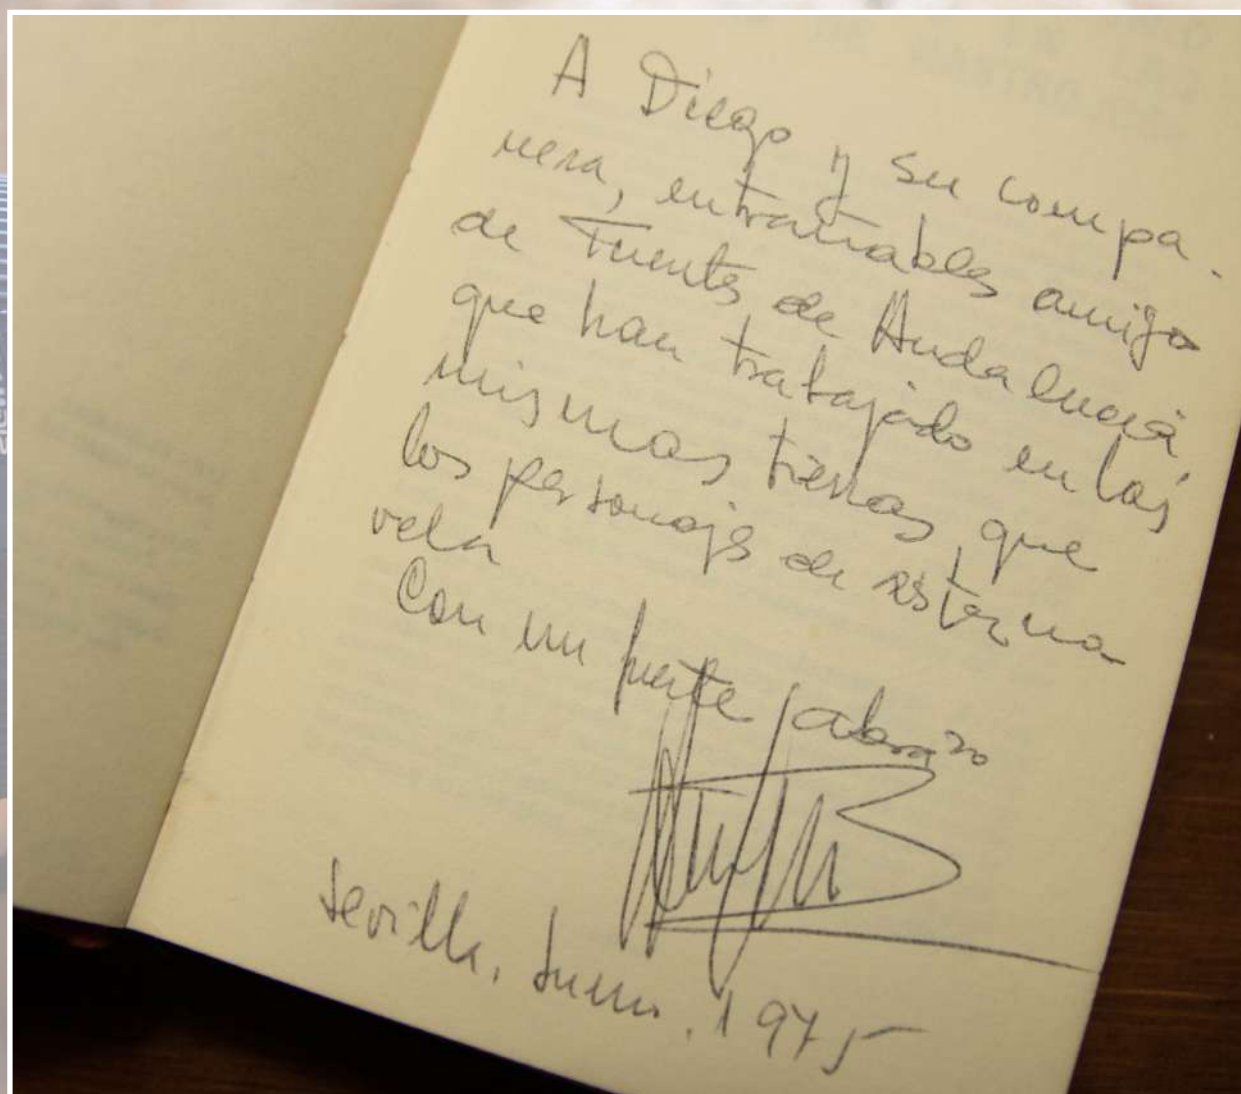 A Diego y su compa-
nera, entrañables amigos
de Fuentes de Andalucía
que han trabajado en las
mismas tierras, que
los personajes de esta no-
vela
Con un fuerte abrazo
Sevilla, Junio. 1975